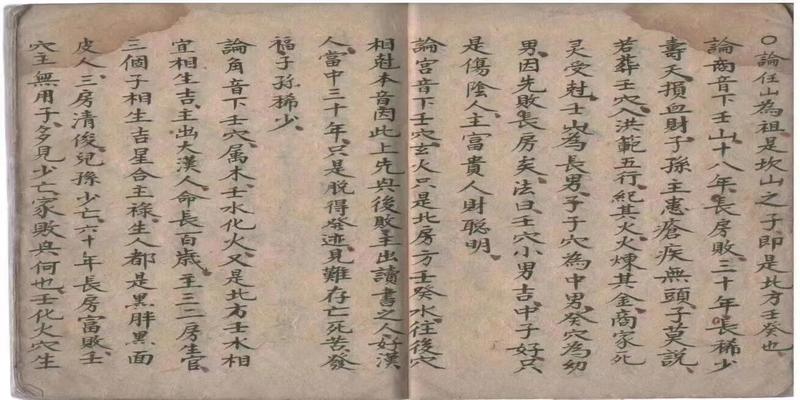 〇論任山為祖是坎山之子即是北方壬癸也
論商音下壬山十八年長房敗二十年長稀少
壽夭損血財子孫主患瘡疾無頭子莫説
若葬壬穴人洪範五行紀其火火煉其金商家死
灵受尅壬山為長男子子穴為中男癸穴為幼
男因先敗長房矣法曰壬穴小男吉中子好只
是傷陰人主富貴人財聪明
論宮音下壬穴玄火只是北房一方壬癸水往後穴
相尅本音因此上先兴後敗主出讀書之人好漢
人當中三十年只是脱得發迹見難存亡死苦發
福子孫稀少
論角音下壬穴属木壬水化火又是北方壬水相
宜相生吉主出大漢人命長百歲至三二房生官
三個子相生吉星合主祿生人都是黑胖黑面
皮人三房清俊兒孫少亡六十年長房富敗壬
穴主無用子多見少亡家敗兴何也壬化火穴生